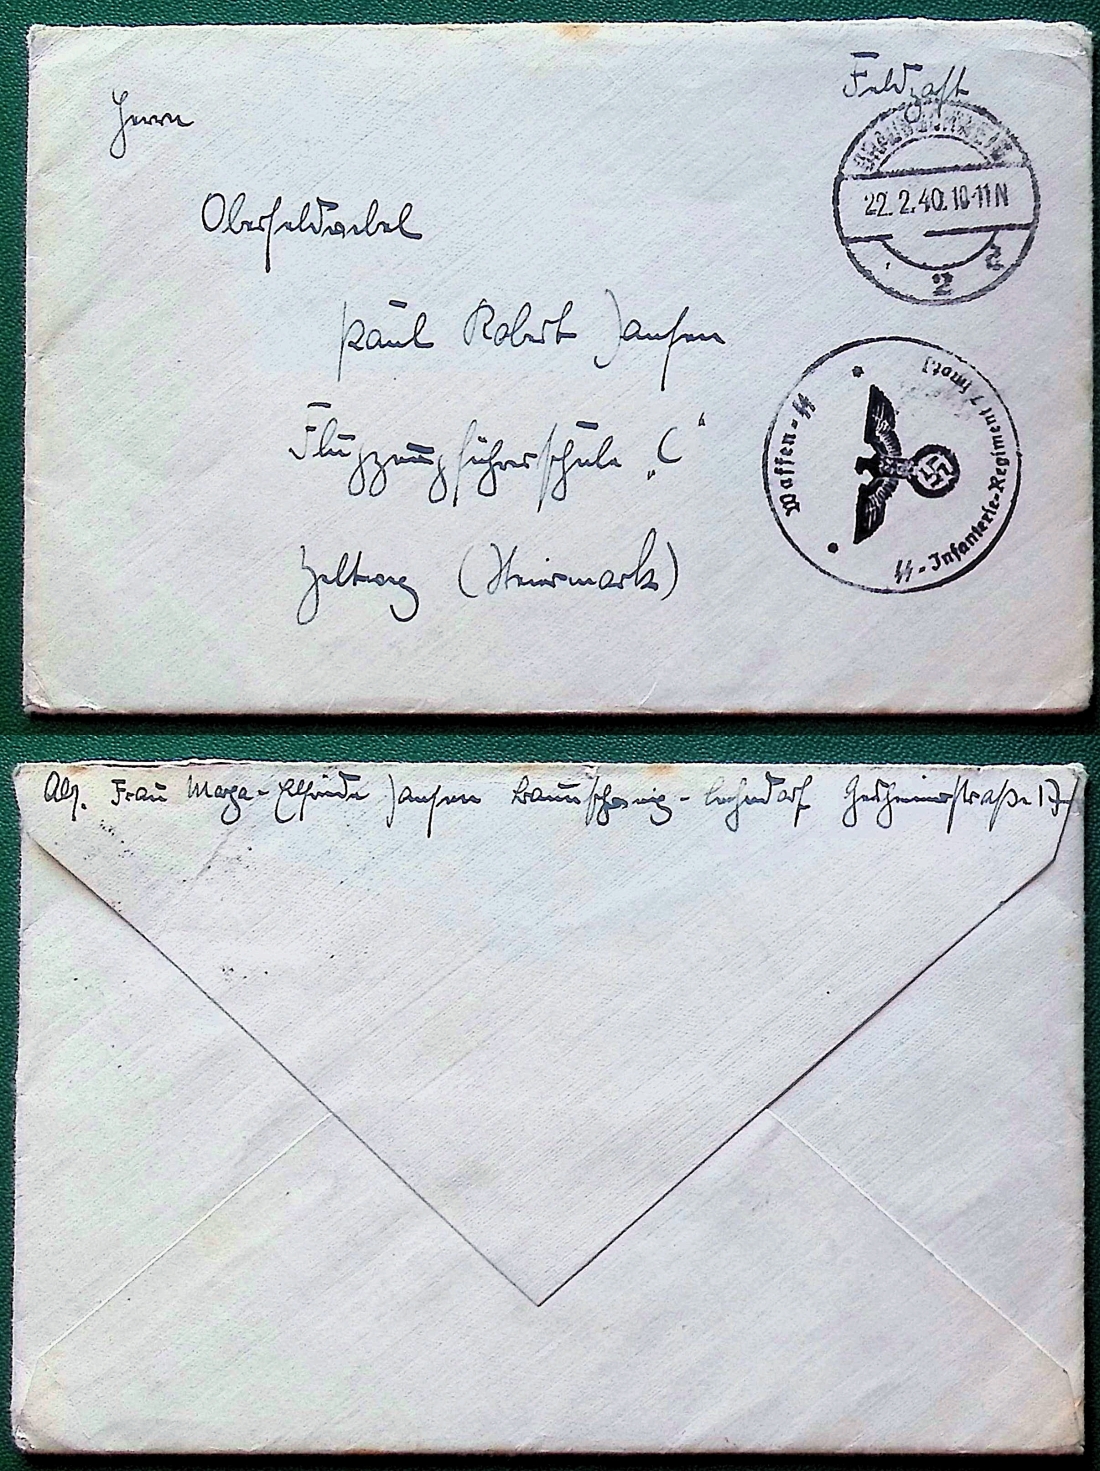 Feldpost
Herrn
BRAUNSCHWEIG
22.2.40.10-11N
2
Oberfeldwebel
Paul Robert Jansen
Waffen-SS
SS-Infanterie-Regiment 7 (mot.)
Flugzeugführerschule „C“
Zeltweg (Steiermark)
Abs. Frau Marga-Elfriede Jansen Braunschweig-Lehndorf straße 17